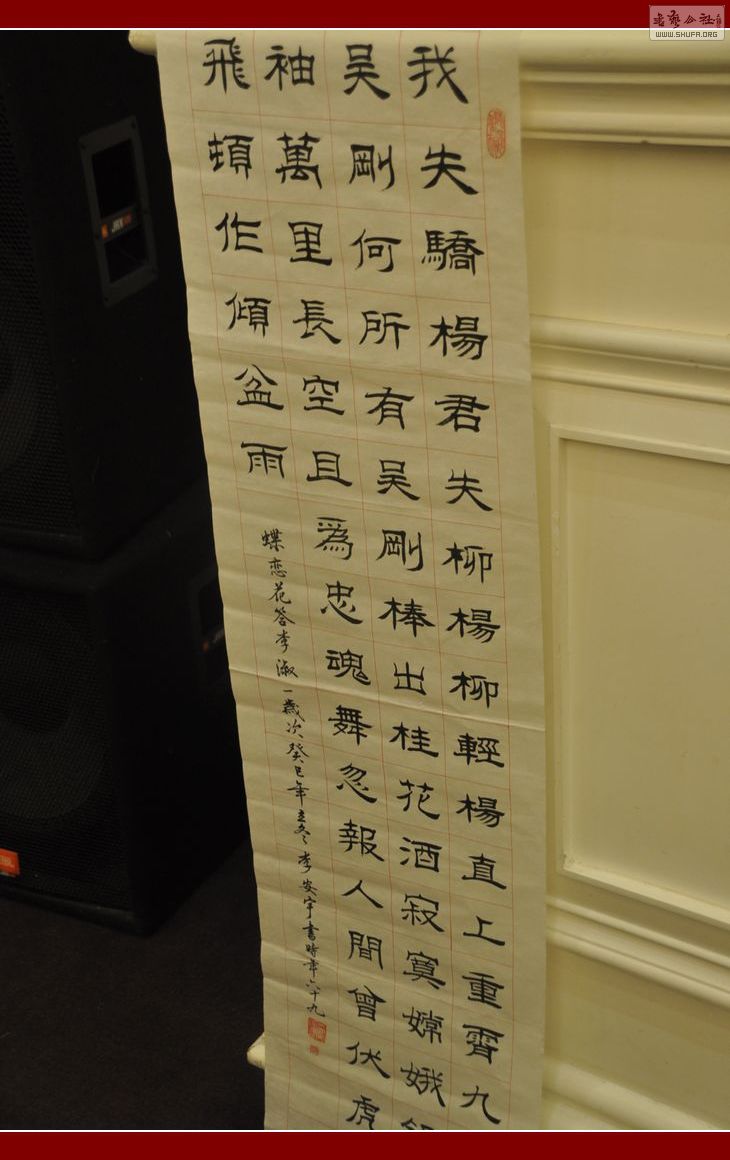 我失驕楊君失柳楊柳輕楊直上重霄九
吳剛何所有吳剛棒出桂花酒寂寞嫦娥
袖萬里長空且為忠魂舞忽報人間曾伏虎
飛頓作傾盆雨
蝶恋花答李淑一歲次癸巳年立冬李安宇書時年六十九
WWW.SHUFA.ORG
JBL